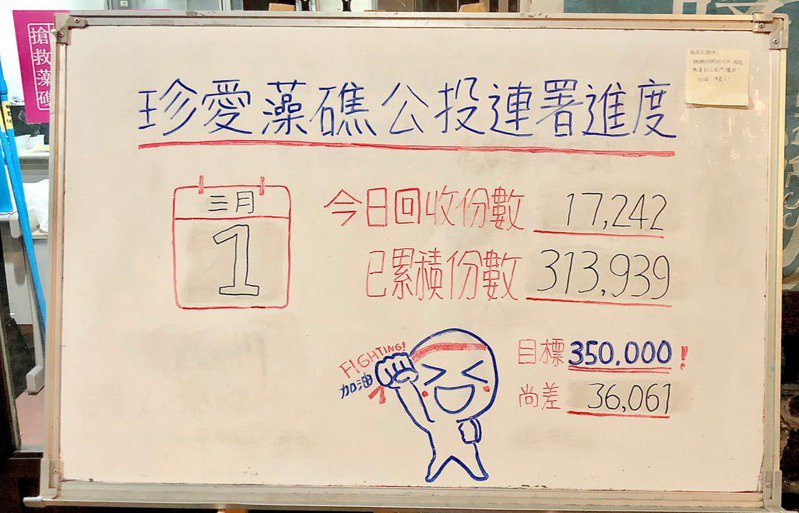 搶救藻礁
珍愛藻礁公投連署進度
三月
1
今日回收份數 17,242
已累積份數 313,939
FIGHTING!
加油
目標 350,000!
尚差 36,061